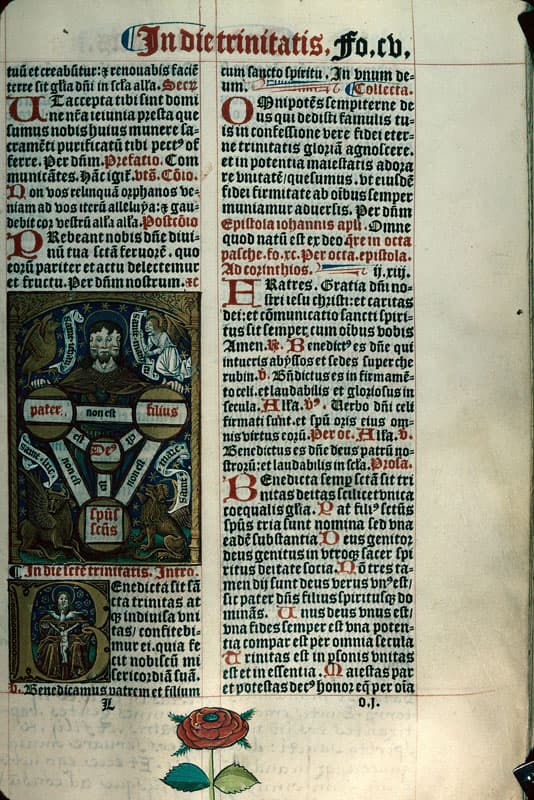 In die trinitatis. Fo. cv.
tuū et creabūtur: ⁊ renouabis faciē
terre sit gl̄ia dn̄i in sc̄la all̄a. Secr̄
UT accepta tibi sint domi
ne nr̄a ieiunia presta que
sumus nobis huius munere sa-
cramēti purificatū tibi pect⁹ of
ferre. Per dn̄m. Prefatio. Com
municātes. Hāc igit̄. vts̄. Cōio.
Non vos relinquā orphanos ve-
niam ad vos iterū alleluya: ⁊ gau-
debit cor vestrū all̄a all̄a. Postcōio
PRebeant nobis dn̄e diui-
nū tua sctā feruorē. quo
eorū pariter et actu delectemur
et fructu. Per dn̄m nostrum.
pater
non est
filius
est
De⁹
est
non est
non est
spūs
sc̄us
In die sctē trinitatis. Intro.
BEnedicta sit sā
cta trinitas at
q̄ indiuisa vni
tas/ confitebi-
mur ei. quia fe
cit nobiscū mi
sericordiā suā.
v̄. Benedicamus patrem et filium
cum sancto spiritu. In vnum de-
um. Collecta.
OMnipotēs sempiterne de
us qui dedisti famulis tu-
is in confessione vere fidei eter-
ne trinitatis gloriā agnoscere.
et in potentia maiestatis adora
re vnitatē/ quesumus. vt eiusdē
fidei firmitate ab oībus semper
muniamur aduersis. Per dn̄m
Epistola iohannis apl̄i. Omne
quod natū est ex deo q̄re in octa
pasche. fo. xc. Per octa. epistola.
Ad corinthios. ij. xiij.
FRatres. Gratia dn̄i no-
stri iesu christi: et caritas
dei: et cōmunicatio sancti spiri-
tus sit semper cum oībus vobis
Amen. R̄. Benedict⁹ es dn̄e qui
intueris abyssos et sedes super che
rubin. v̄. Bn̄dictus es in firmamē-
to celi. et laudabilis et gloriosus in
secula. All̄a. v⁹. Verbo dn̄i celi
firmati sunt. et spū oris eius om-
nis virtus eorū. Per oc. All̄a. v̄.
Benedictus es dn̄e deus patrū no-
strorū: et laudabilis in sc̄la. Prosa.
BEnedicta semp̄ sctā sit tri
nitas deitas scilicet vnita
coequalis gl̄ia. Pat̄ fili⁹ sctūs
spūs tria sunt nomina sed vna
eadē substantia Deus genitor
deus genitus in vtroq̄ sacer spi
ritus deitate socia. Nō tres ta-
men dij sunt deus verus vn⁹ est/
sic pater dn̄s filius spiritusq̄ do
minās. Unus deus vnus est/
vna fides semper est vna poten-
tia compar est per omnia secula
Trinitas est in psonis vnitas
est et in essentia. Maiestas par
et potestas dec⁹ honor eq̄ per oīa
o. j.